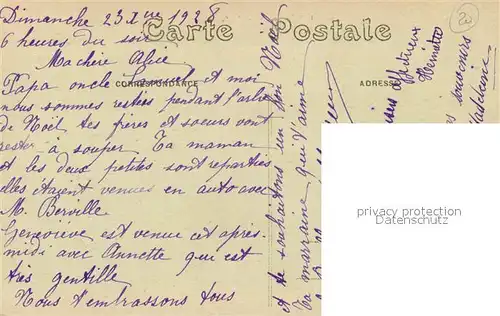 Dimanche 23 Xbre 1928
6 heures du soir
Carte Postale
CORRESPONDANCE
ADRESSE
Ma chère Alice
Papa oncle et moi
nous sommes restées pendant l'arbre
de Noël, tes frères et soeurs vont
rester à souper. Ta maman
et les deux petites sont reparties
elles étaient venues en auto avec
M. Berville
Geneviève est venue cet après
midi avec Annette qui est
très gentille
Nous t'embrassons tous
et te souhaitons un bon Noël
Ta marraine qui t'aime
affectueux
souvenirs
Madeleine
privacy protection
www.oldthing.de
20